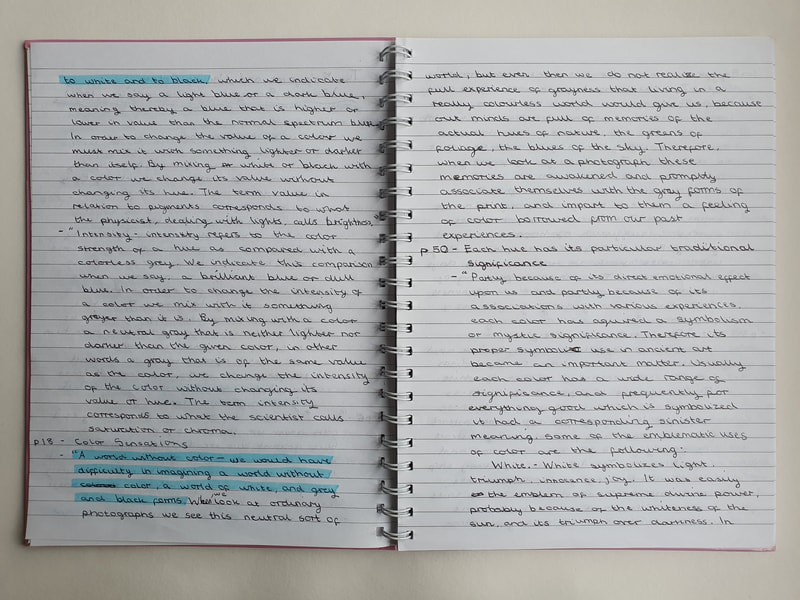 to white and to black, which we indicate
when we say a light blue or a dark blue,
meaning thereby a blue that is higher or
lower in value than the normal spectrum blue.
In order to change the value of a color we
must mix it with something lighter or darker
than itself. By mixing or white or black with
a color we change its value without
changing its hue. The term value in
relation to pigments corresponds to what
the physicist, dealing with lights, calls brightness."
- "Intensity- intensity refers to the color
strength of a hue as compared with a
colorless grey. We indicate this comparison
when we say, a brilliant blue or dull
blue. In order to change the intensity of
a color we mix with it something
greyer than it is. By mixing with a color
a neutral gray that is neither lighter nor
darker than the given color, in other
words a gray that is of the same value
as the color, we change the intensity
of the color without changing its
value or hue. The term intensity
corresponds to what the scientist calls
saturation or chroma.
p18 - Color Sinsations
- "A world without color - we would have
difficulty in imagining a world without
color, a world of white, and grey
and black forms. When we look at ordinary
photographs we see this neutral sort of
world, but even then we do not realize the
full experience of grayness that living in a
really colourless world would give us, because
our minds are full of memories of the
actual hues of nature, the greens of
foliage, the blues of the sky. Therefore,
when we look at a photograph these
memories are awakened and promptly
associate themselves with the gray forms of
the print, and impart to them a feeling
of color borrowed from our past
experiences.
p 50 - Each hue has its particular traditional
significance
- "Partly because of its direct emotional effect
upon us and partly because of its
associations with various experiences,
each color has aquired a symbolism
or mystic significance. Therefore its
proper symbolic use in ancient art
became an important matter. Usually
each color has a wide range of
significance, and frequently for
everything good which is symbolized
it had a corresponding sinister
meaning. Some of the emblematic uses
of color are the following:
White. - White symbolizes light,
triumph, innocence, joy. It was easily
the emblem of supreme divine power,
probably because of the whiteness of the
sun, and its triumph over darkness. In